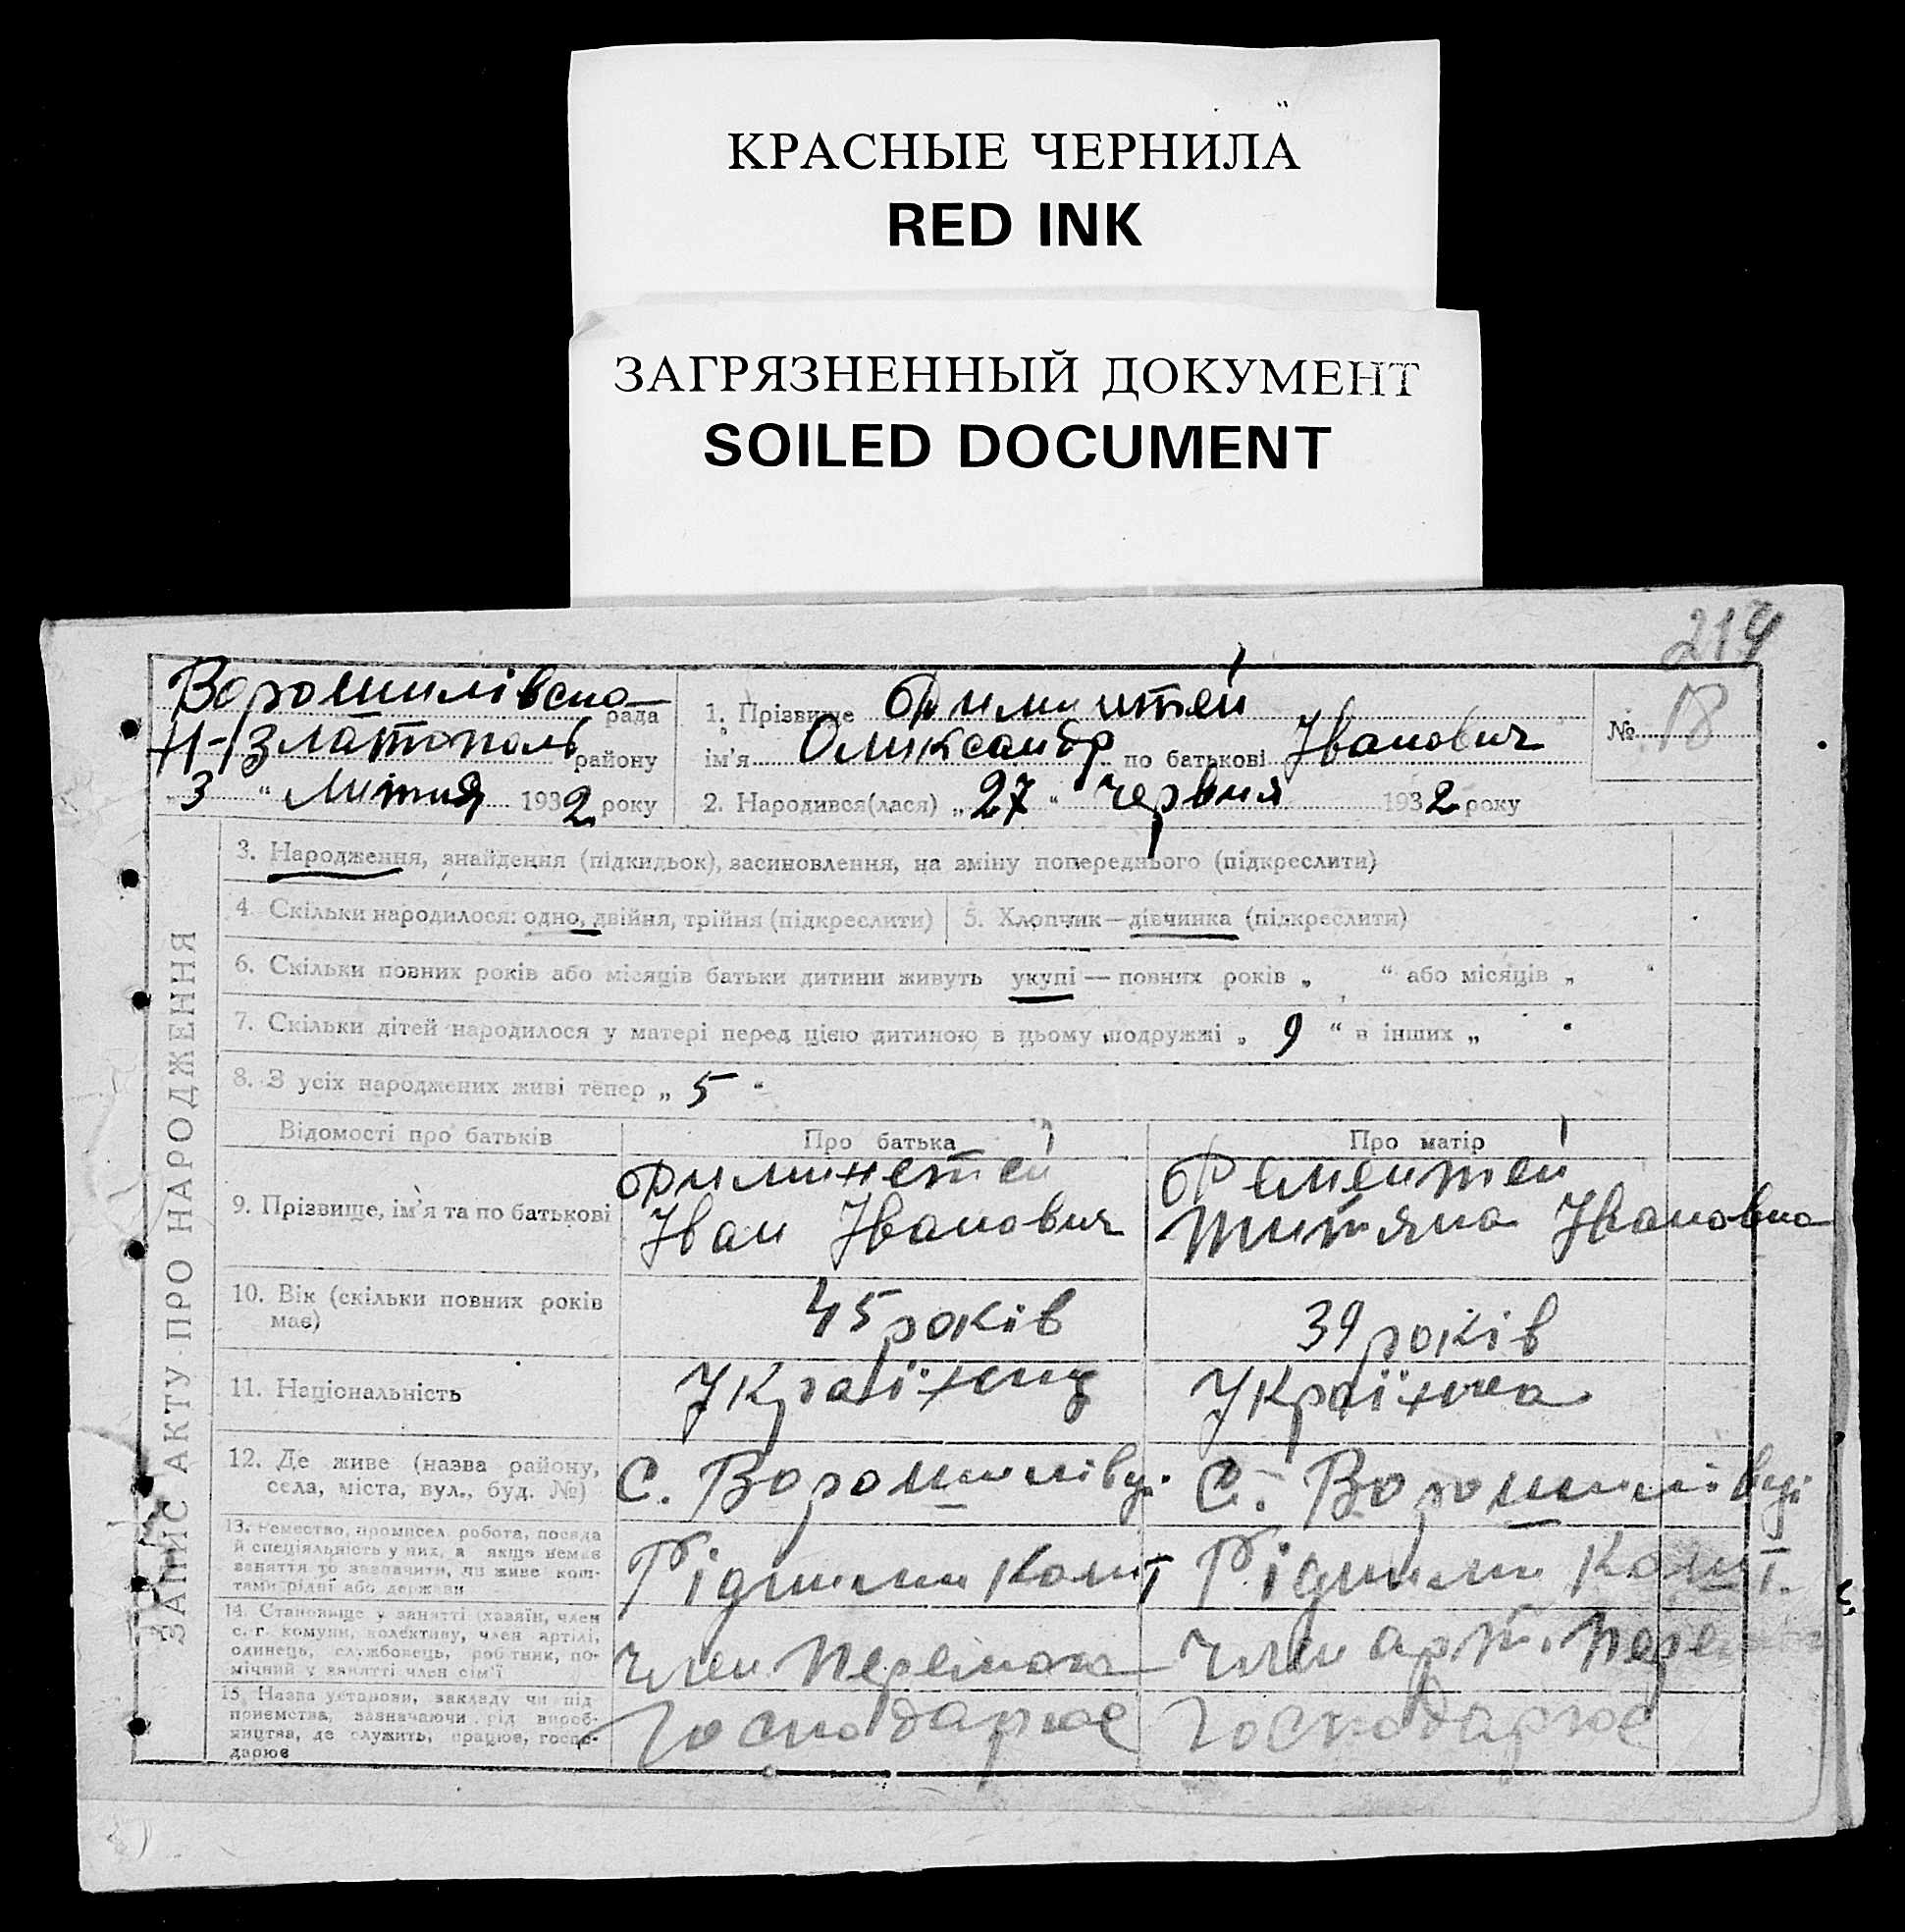 КРАСНЫЕ ЧЕРНИЛА
RED INK
ЗАГРЯЗНЕННЫЙ ДОКУМЕНТ
SOILED DOCUMENT
214
Ворошилівська рада
Н-Златополь району
3 " Литня 1932 року
1. Прізвище Филиштей
ім'я Оликсандр по батькові Іванович
2. Народився(лася) „ 27 " червня 1932 року
№ 18
ЗАПИС АКТУ ПРО НАРОДЖЕННЯ
3. Народження, знайдення (підкидьок), засиновлення, на зміну попереднього (підкреслити)
4. Скільки народилося: одно, двійня, трійня (підкреслити)
5. Хлопчик—дівчинка (підкреслити)
6. Скільки повних років або місяців батьки дитини живуть укупі — повних років „ " або місяців „
7. Скільки дітей народилося у матері перед цією дитиною в цьому подружжі „ 9 " в інших „
8. З усіх народжених живі тепер „ 5 "
Відомості про батьків
Про батька
Про матір
9. Прізвище, ім'я та по батькові
Іван Іванович
Фементей
Титяна Івановна
10. Вік (скільки повних років має)
45 років
39 років
11. Національність
Україниц
Українка
12. Де живе (назва району,
села, міста, вул., буд. №)
С. Ворошилівці
С. Ворошилівці
13. Ремество, промисел, робота, посада
й спеціяльність у них, а якщо немає
заняття то зазначити, чи живе кош-
тами рідні або держави
Рідними кошт
Рідними кошт.
14. Становище у занятті (хазяїн, член
с. г. комуни, колективу, член артілі,
одинець, службовець, робітник, по-
мічний у занятті член сім'ї
член Перемога
член арт.
15. Назва установи, закладу чи під
приємства, зазначаючи рід вироб-
ництва, де служить, працює, госпо-
дарює
Господарює
Господарює